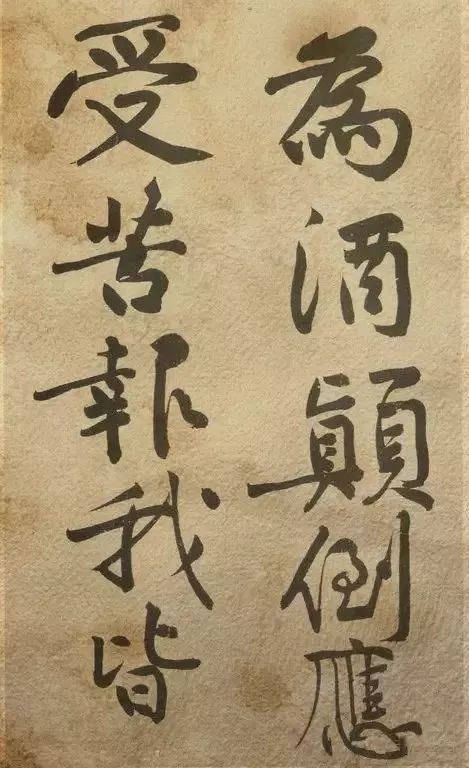 為酒顛倒應
受苦報我皆